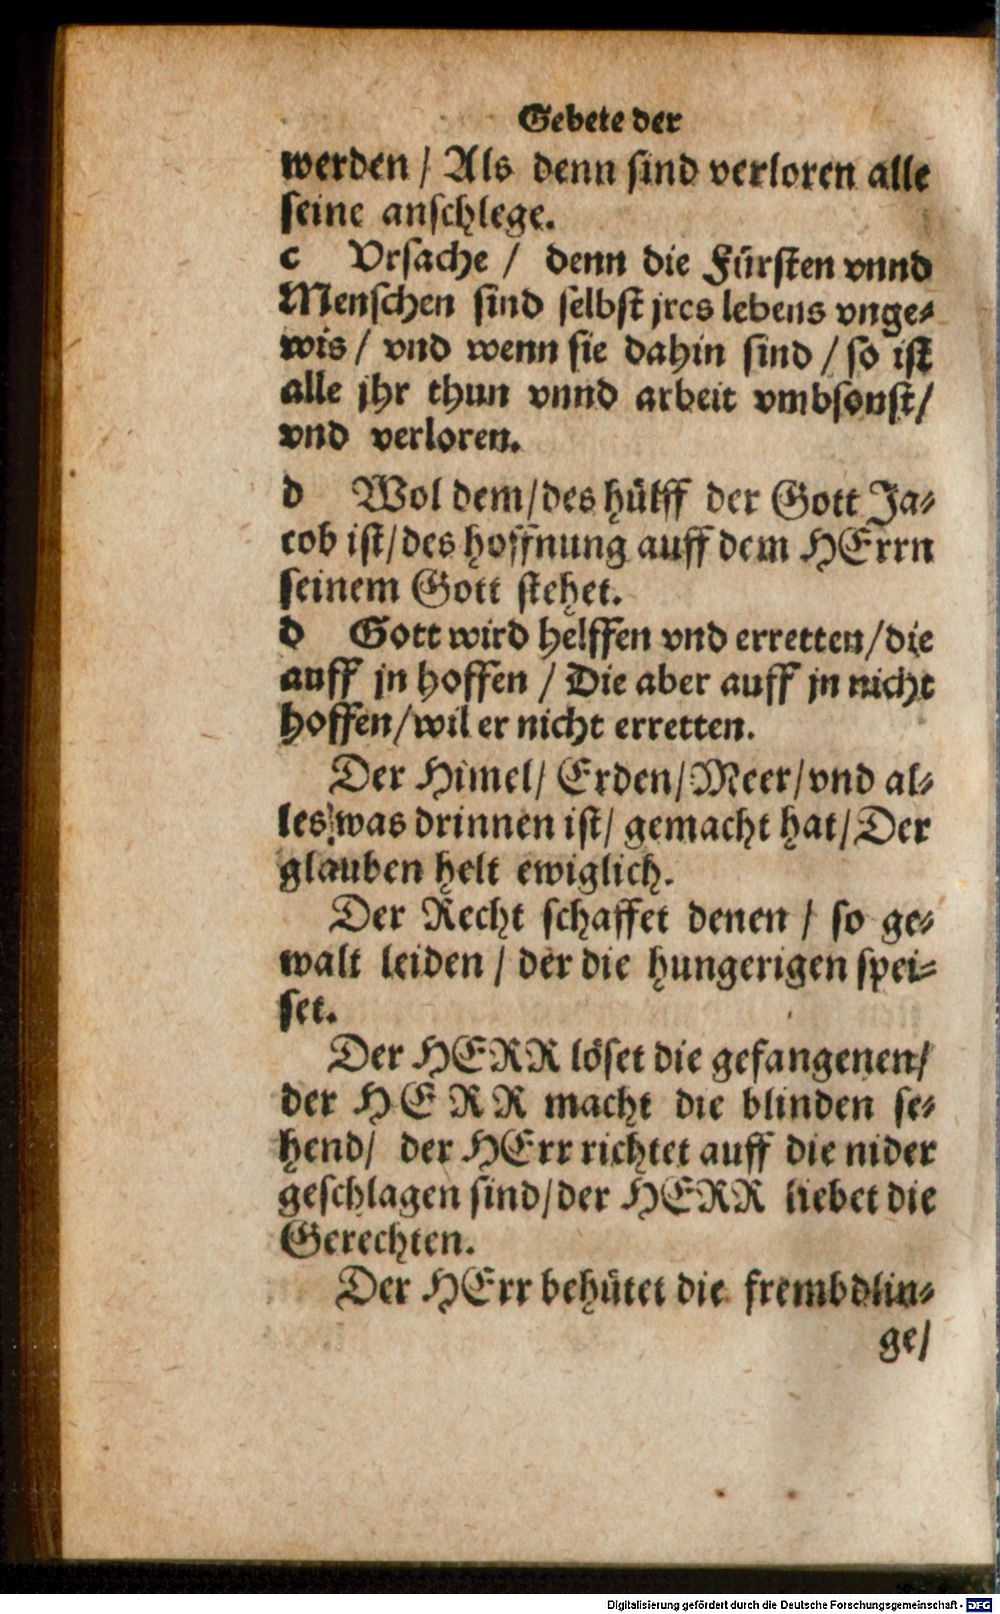 Gebete der
werden / Als denn sind verloren alle
seine anschlege.
c Vrsache / denn die Fürsten vnnd
Menschen sind selbst jres lebens vnge-
wis / vnd wenn sie dahin sind / so ist
alle jhr thun vnnd arbeit vmbsonst /
vnd verloren.
d Wol dem / des hülff der Gott Ja-
cob ist / des hoffnung auff dem HErrn
seinem Gott stehet.
d Gott wird helffen vnd erretten / die
auff jn hoffen / Die aber auff jn nicht
hoffen / wil er nicht erretten.
Der Himel / Erden / Meer / vnd al-
les was drinnen ist / gemacht hat / Der
glauben helt ewiglich.
Der Recht schaffet denen / so ge-
walt leiden / der die hungerigen spei-
set.
Der HERR löset die gefangenen /
der HERR macht die blinden se-
hend / der HErr richtet auff die nider
geschlagen sind / der HERR liebet die
Gerechten.
Der HErr behütet die frembdlin-
ge /
Digitalisierung gefördert durch die Deutsche Forschungsgemeinschaft - DFG